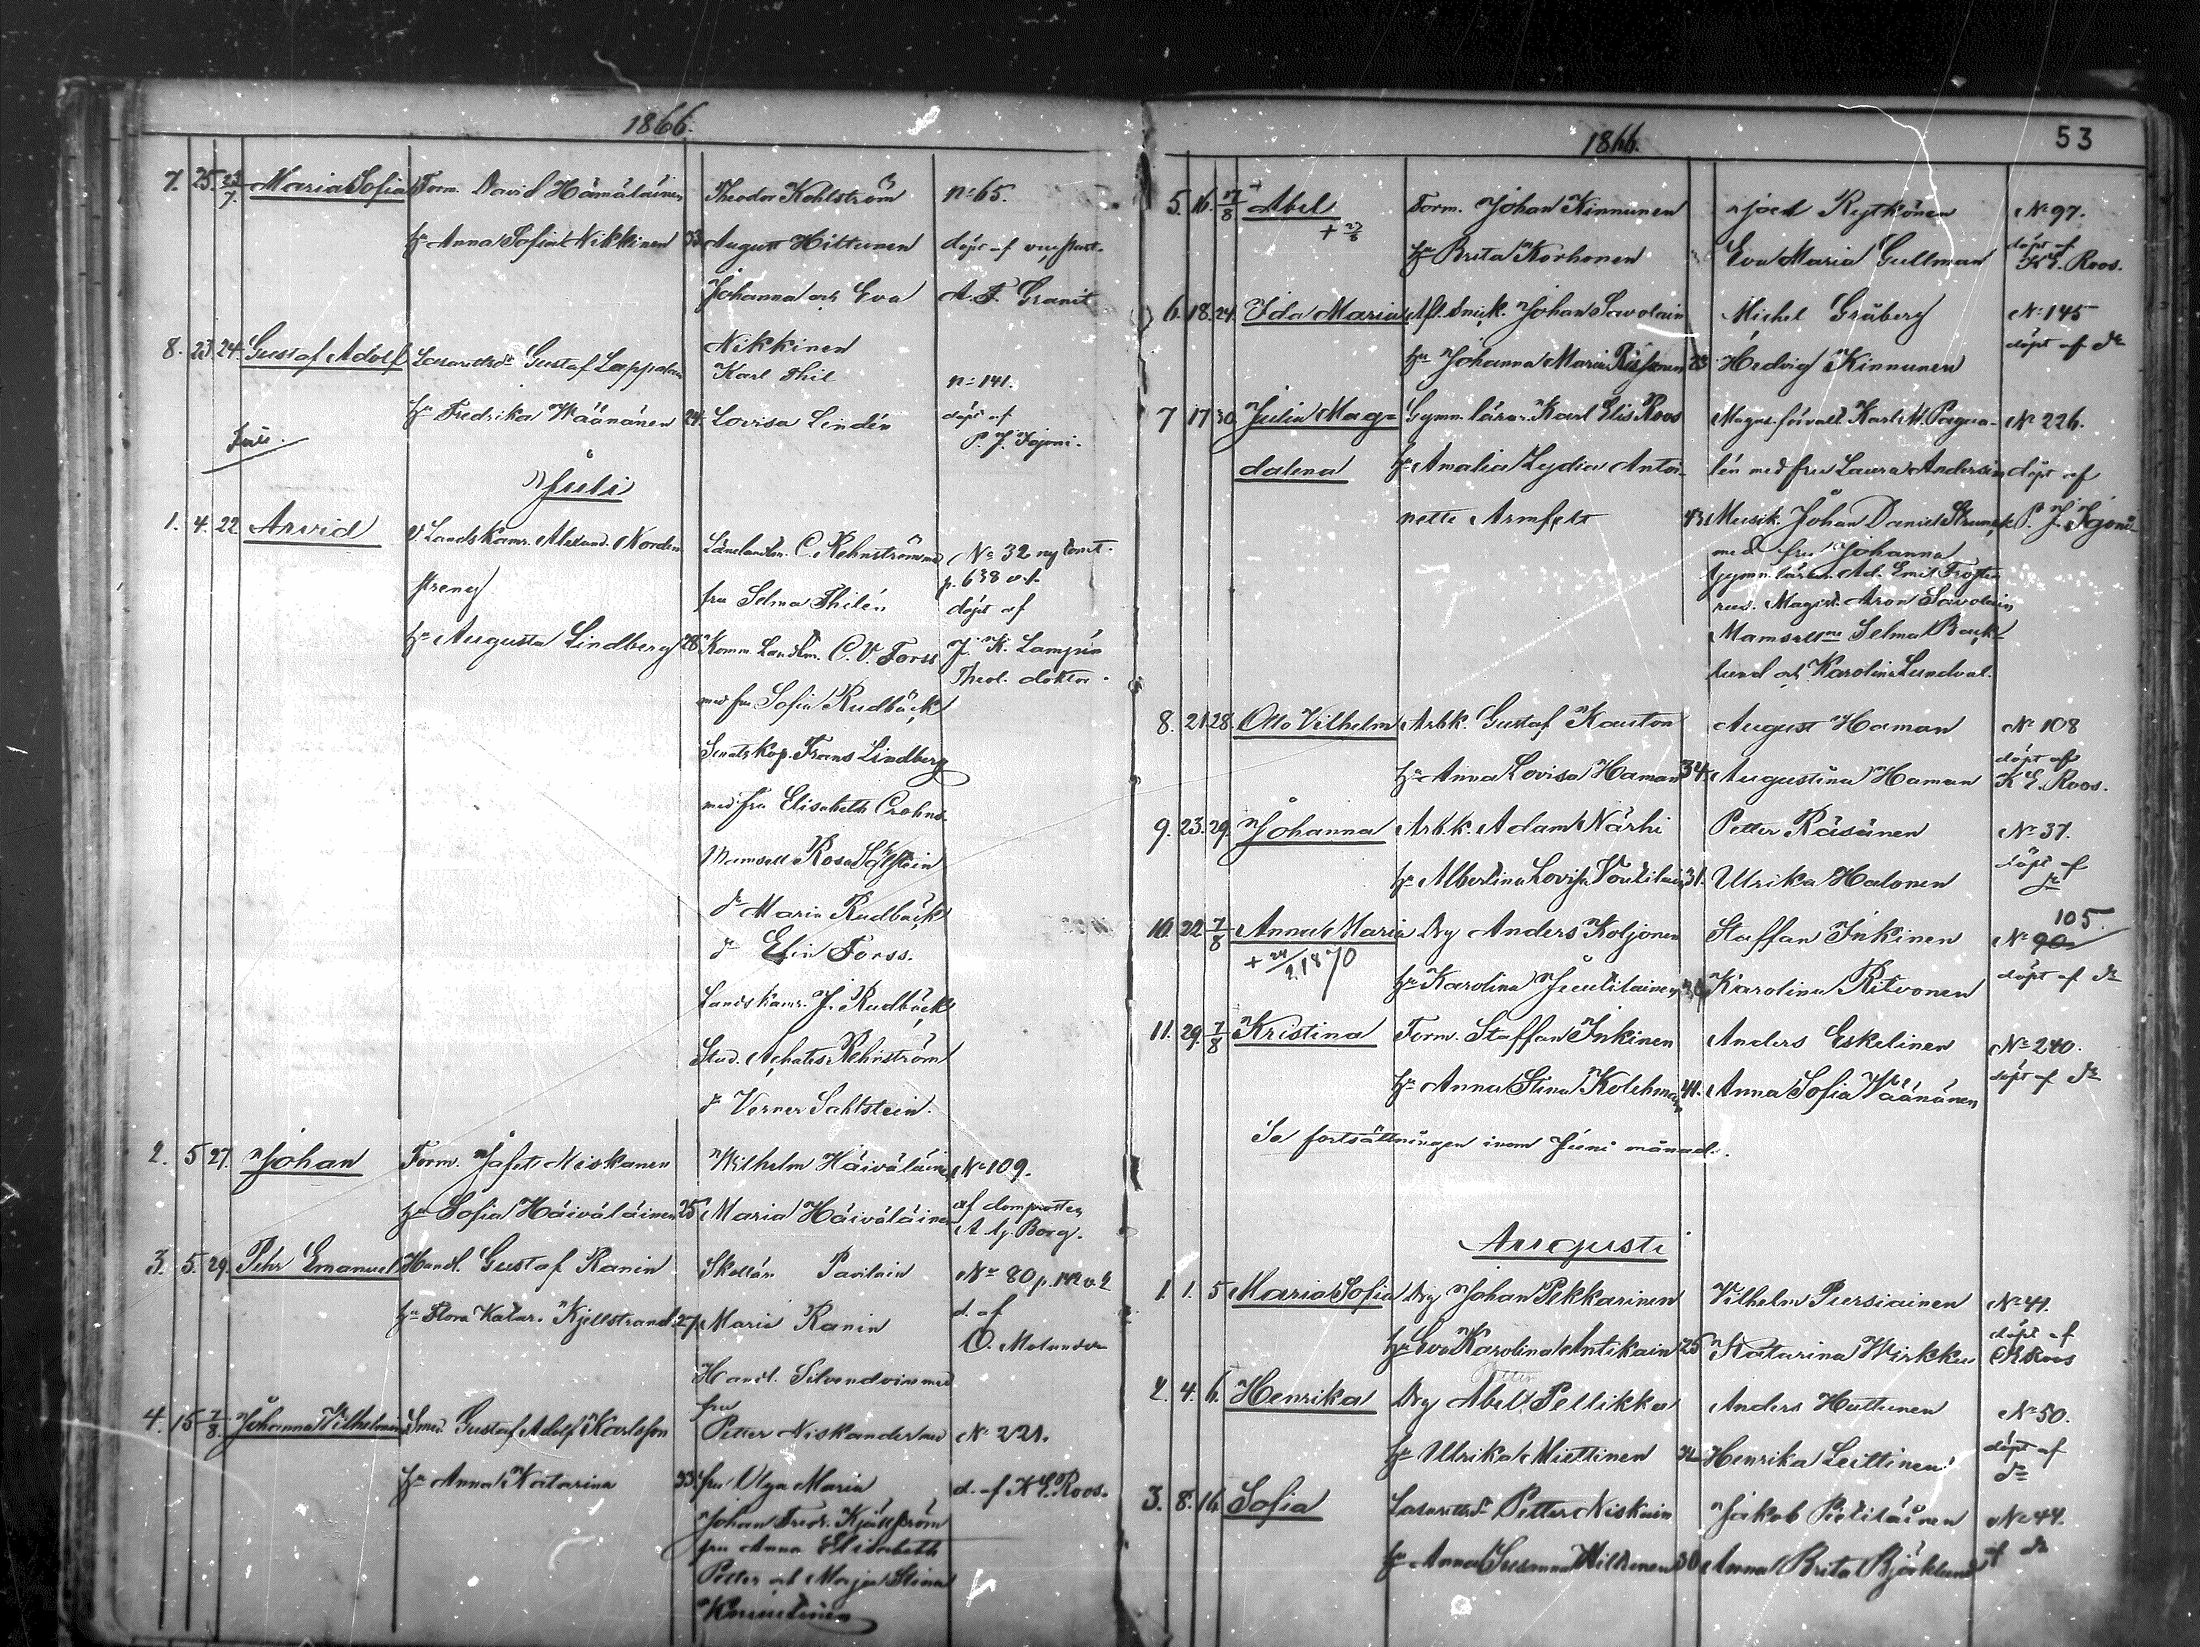 1866.
7. 25. 23/7. Maria Sofia Torm. David Hämäläinen Theodor Kohlström n:65.
hu Anna Sofia Nikkinen 33 August Hiltunen döpt af
Johanna och Eva A. F. Granit
8. 23. 24. Gustaf Adolf Gustaf Lappalain Nikkinen
Karl Thil n:141.
hu Fredrika Wäänänen 24. Lovisa Lindén döpt af
P. J. Igoni.
Juli.
Juli
1. 4. 22. Arvid v Landskamr. Alexand. Norden Länelandtm. C. Rehnström med No 32 ny tomt.
streng fru Selma Thilén p. 638 döpt af
hu Augusta Lindberg 28. Komm. Landtm. C. V. Forss J. K. Lampén
Theol. doktor.
med fru Sofia Rudbäck
Senats kop. Frans Lindberg
med fru Elisabeth Crohns.
Mamsell Rosa Sahlstein
do Maria Rudbäck
do Elin Forss.
Landskamr. J. Rudbäck
Stud. Achates Rehnström
do Verner Sahlstein.
2. 5 27. Johan Torm. Jafet Niskanen Wilhelm Häiväläinen No 109.
hu Sofia Häiväläinen 25 Maria Häiväläinen af domprosten
A. G. Borg.
3. 5. 29. Pehr Emanuel Handl. Gustaf Ranin Pavilain No 80 p. 142
hu Flora Katar. Kjellstrand 27. Maria Ranin d. af
O. Molander
Handl. Silvendoin med
fru
4. 15 7/8. Johanna Wilhelmina Smed. Gustaf Adolf Karlsson Petter Niskander med No 221.
hu Anna Katarina 33. fru Olga Maria d. af K E. Roos.
Johan Fredr. Kjällström
fru Anna Elisabeth
Petter och Maja Stina
1866. 53
5. 16. 7/8 Abel Torm. Johan Kinnunen Rytkönen No 97.
hu Brita Korhonen Eva Maria Gullman döpt af
K E. Roos.
6. 18. 24. Ida Maria Johan Savolain Michel Gråberg No 145
hu Johanna Maria 23 Hedvig Kinnunen döpt af do
7 17 30 Julia Mag= Gymn. lärar. Karl Elis Roos Magas. förvalt. Karl M. No 226.
dalena hu Amalia Lydia Antoi- lén med fru Laura Andersin döpt af
nette Armfelt 43. Musik. Johan Daniel P. J. Igoni.
med fru Johanna
Gymn. lärar. Ad. Emil Froste
rus. Magist. Aron Savolain
Mamsellne Selma Back
lund och Karolina Lundval.
8. 21 28. Otto Vilhelm Arbk. Gustaf Kauton August Haman No 108
hu Anna Lovisa Haman 34. Augustina Haman döpt af
K E. Roos.
9. 23. 29. Johanna Arbk. Adam Närhi Petter Räsänen No 37.
hu Albertina Lovisa Voutilain 31. Ulrika Halonen döpt af
do
10. 22 7/8 Anna Maria Drg Anders Koljonen Staffan Inkinen No 90 105.
hu Karolina Juutilainen Karolina Ritvonen döpt af do
11. 29. 7/8 Kristina Torm. Staffan Inkinen Anders Eskelinen No 240.
hu Anna Stina Kolehmain 41. Anna Sofia Väänänen döpt af do
Se fortsättningen inom Juni månad.
Augusti
1. 1. 5 Maria Sofia Drg Johan Pekkarinen Vilhelm Pursiainen No 41.
hu Eva Karolina Antikain 25 Katarina Wirkku döpt af
K E Roos
2. 4. 6. Henrika Drg Abel Pellikka Anders Huttunen No 50.
hu Ulrika Miettinen Henrika Leittinen döpt af
do
3. 8. 16. Sofia Petter Niskain Jakob Pietiläinen No 44.
hu Anna Susanna Miltunen 30 Anna Brita Björklund af do